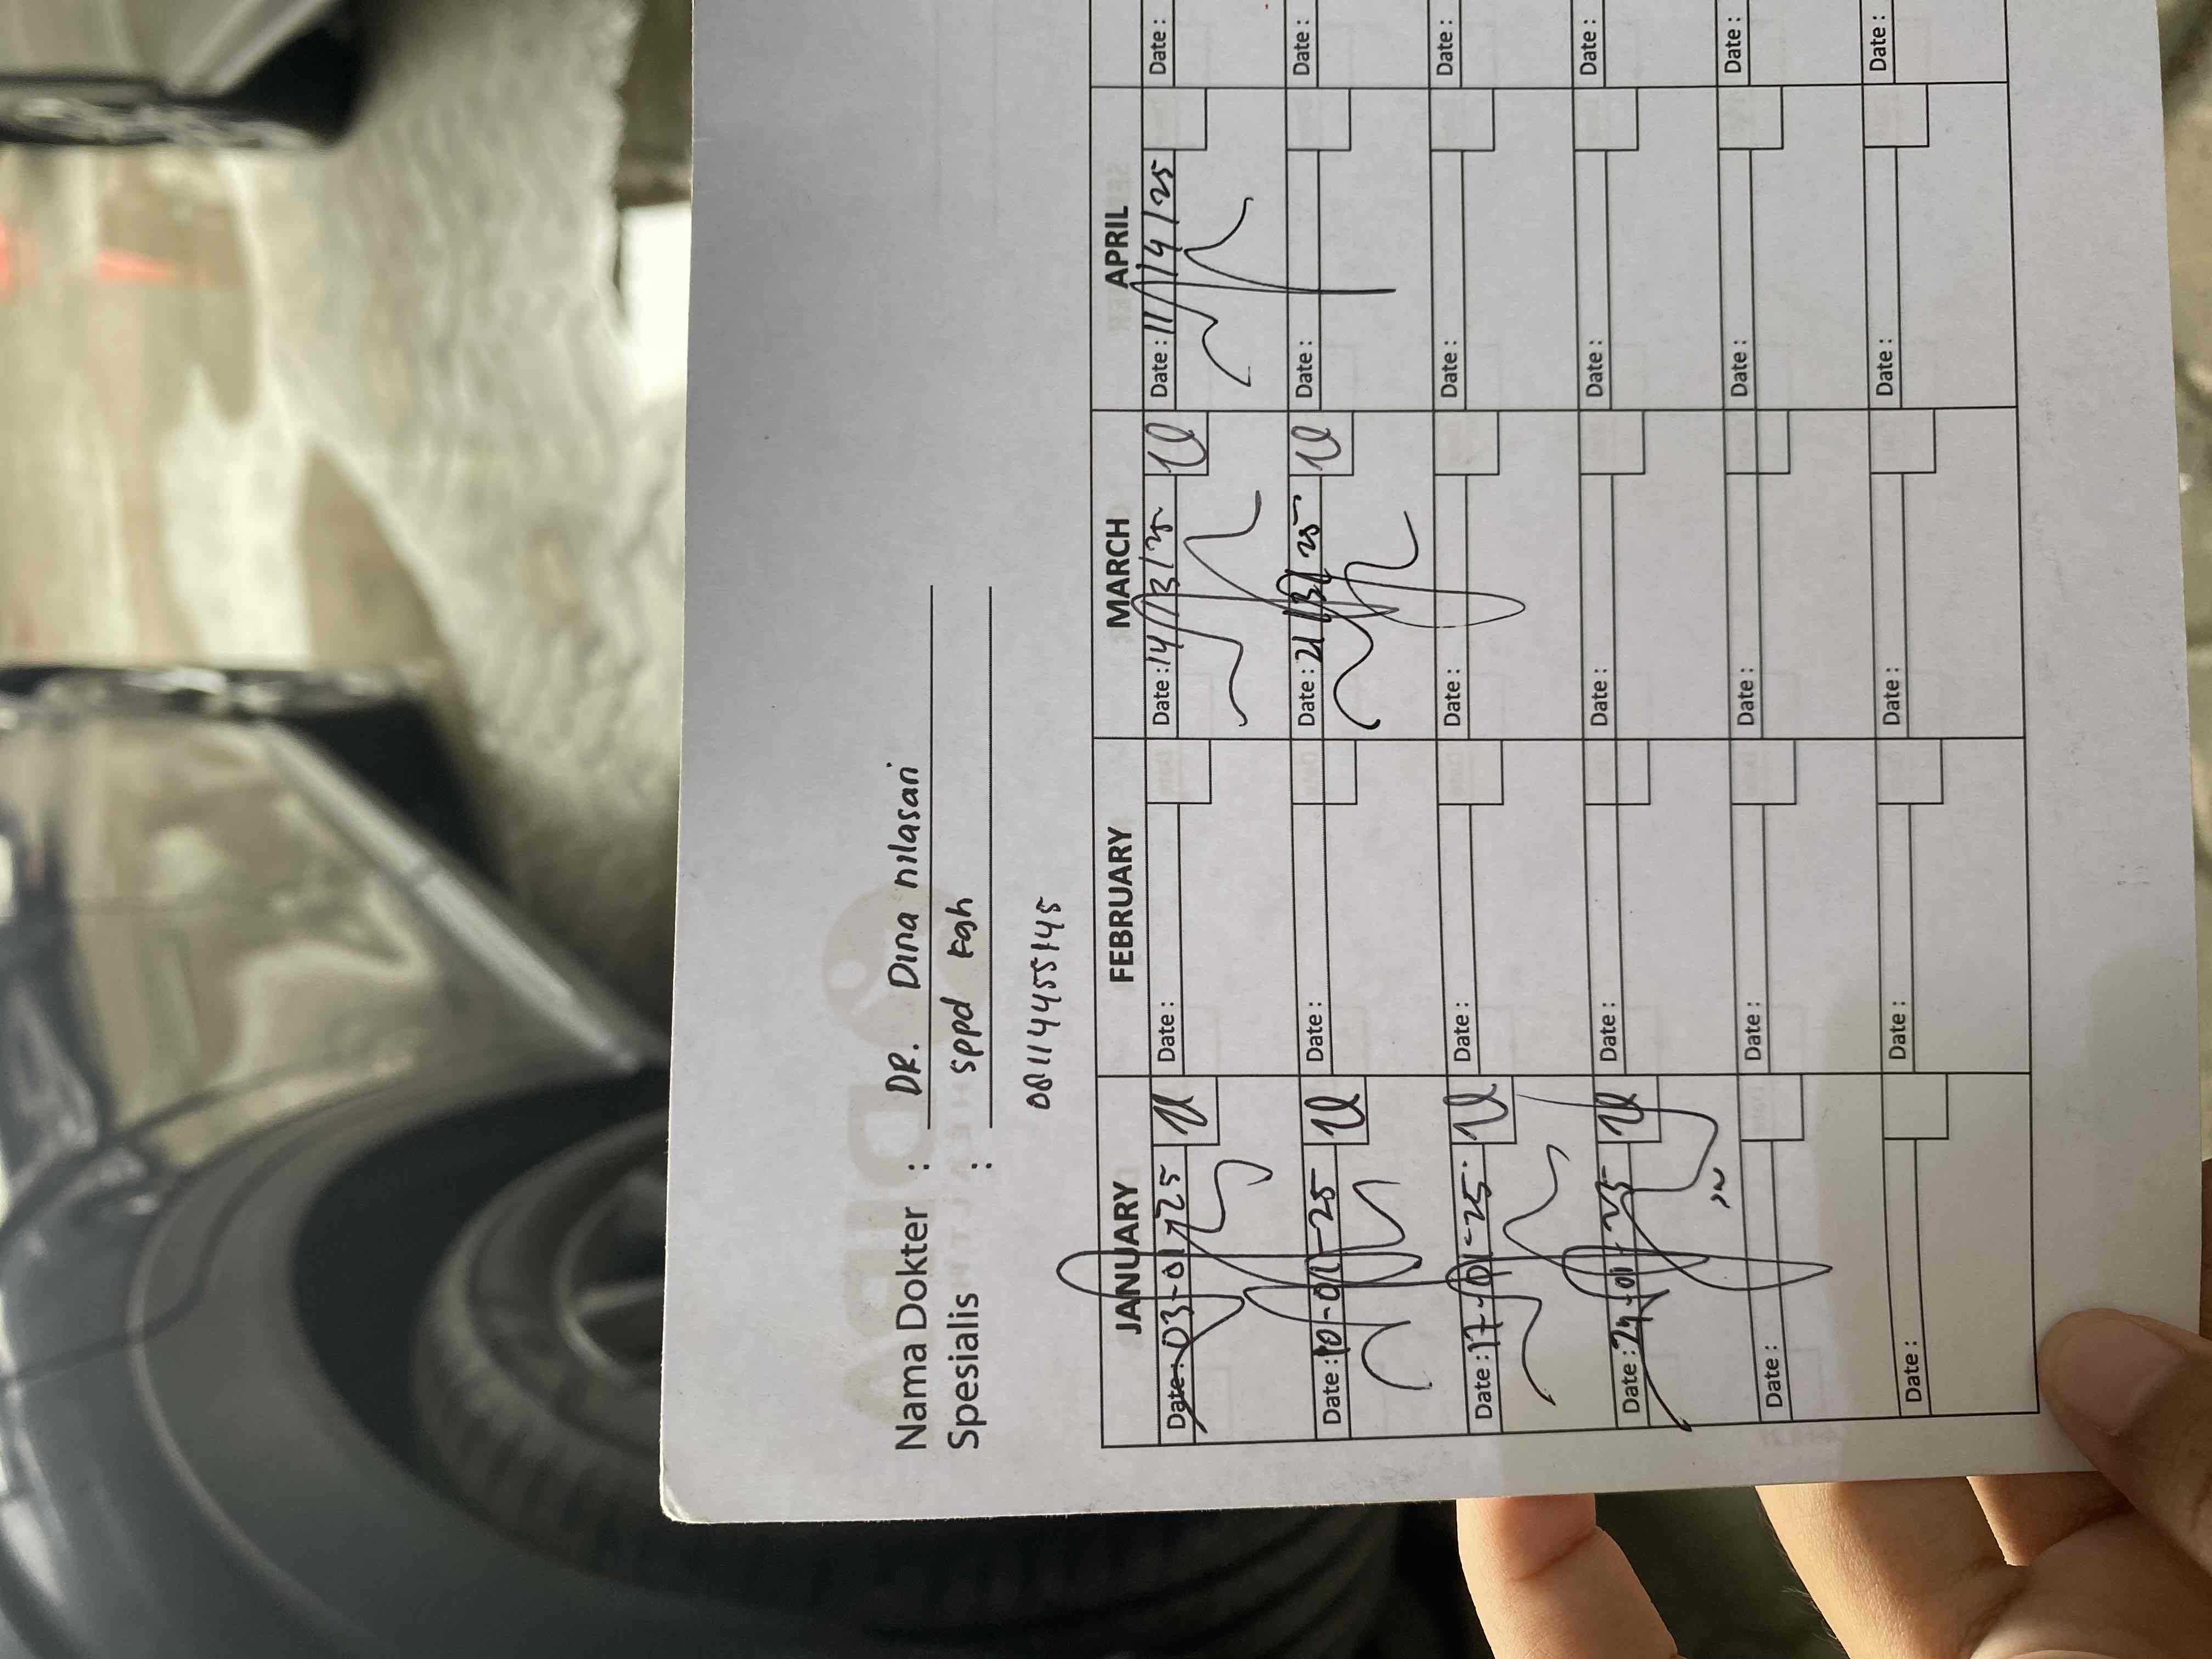 Nama Dokter : DR. Dina nilasari
Spesialis : sppd kgh
08114455145
JANUARY FEBRUARY MARCH APRIL
Date : 03-01-25 Date : Date : 14/3/25 Date : 11/4/25 Date :
Date : 10-01-25 Date : Date : 21/3/25 Date : Date :
Date : 17-01-25. Date : Date : Date : Date :
Date : 24-01-25 Date : Date : Date : Date :
Date : Date : Date : Date : Date :
Date : Date : Date : Date : Date :